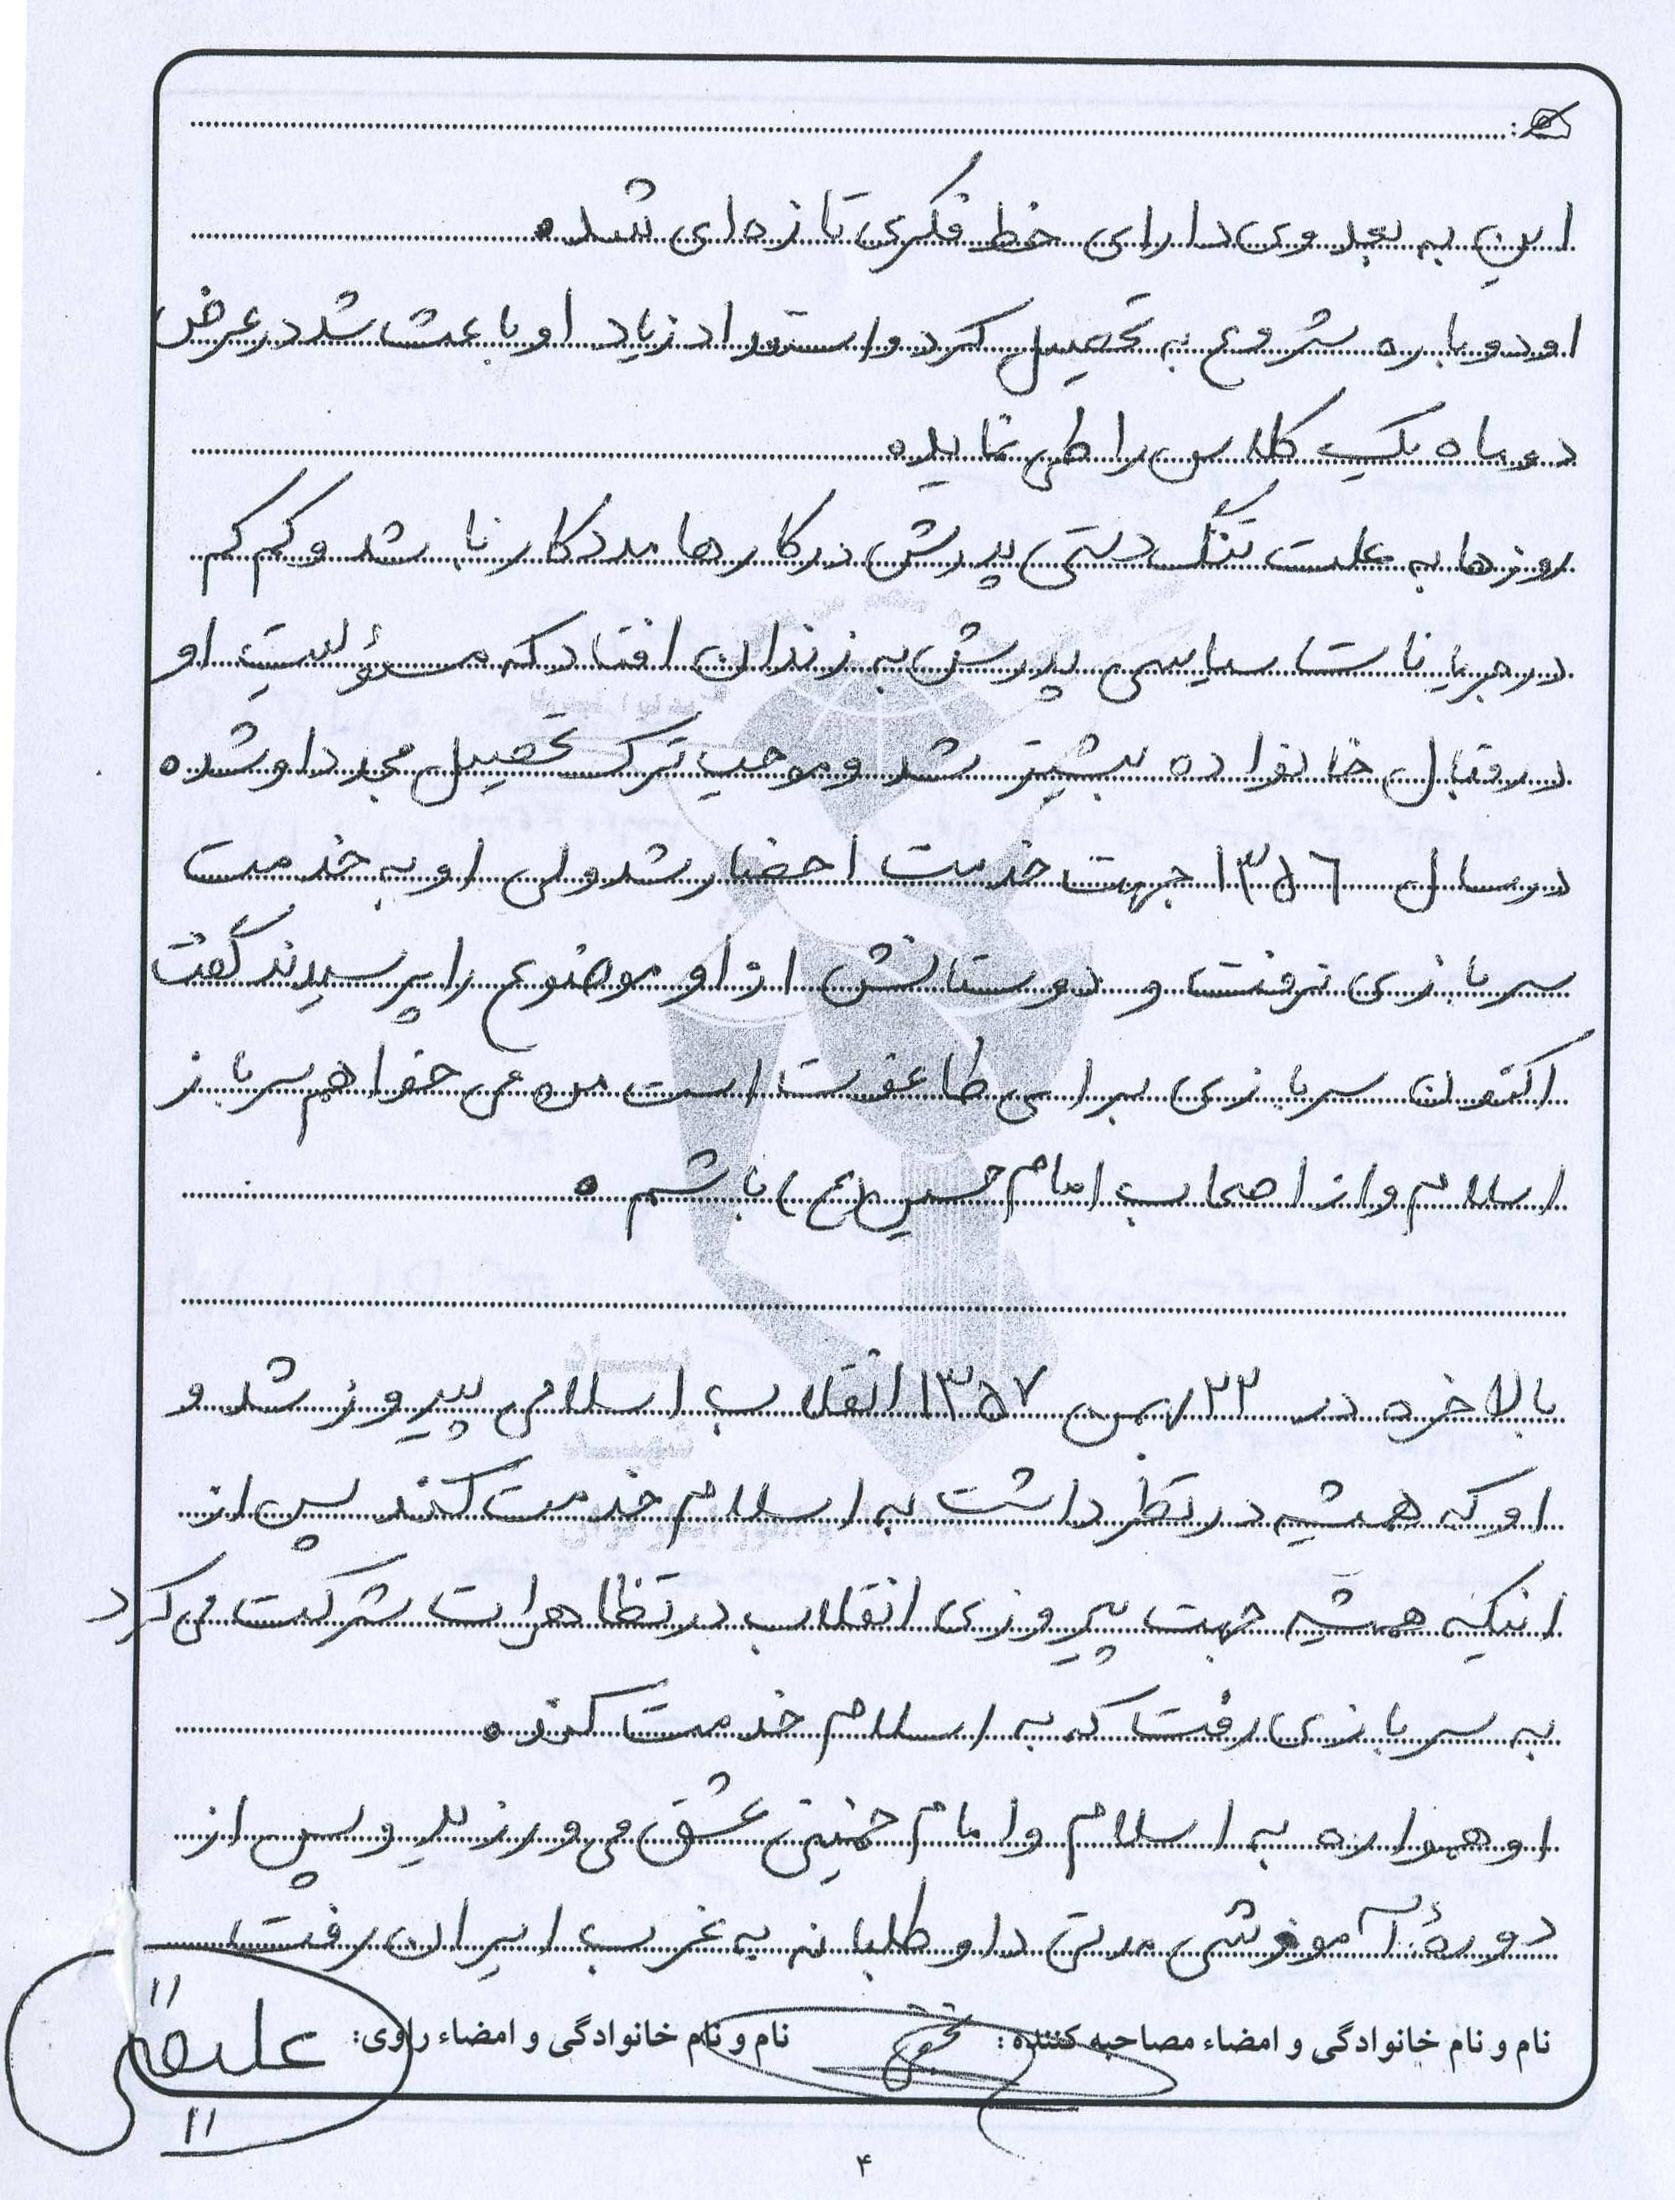 این به بعد وی دارای خط فکری تازه‌ای شد.
او دوباره شروع به تحصیل کرد و استعداد زیاد او باعث شد در عرض
دو ماه یک کلاس را طی نماید.
روزها به علت تنگ دستی پدرش در کارها مددکار بابا شد و کم کم
در جریانات سیاسی پدرش به زندان افتاد که مسئولیت او
در قبال خانواده بیشتر شد و موجب ترک تحصیل مجدد او شد.
در سال ۱۳۵۶ جهت خدمت احضار شد ولی او به خدمت
سربازی نرفت و دوستانش از او موضوع را پرسیدند گفت
اکنون سربازی برای طاغوت است من می خواهم سرباز
اسلام و از اصحاب امام حسین (ع) باشم.
بالاخره در ۲۲ بهمن ۱۳۵۷ انقلاب اسلامی پیروز شد و
او که همیشه در نظر داشت به اسلام خدمت کند پس از
اینکه همیشه جهت پیروزی انقلاب در تظاهرات شرکت می کرد
به سربازی رفت که به اسلام خدمت کند.
او همواره به اسلام و امام خمینی عشق می ورزید و پس از
دورهٔ آموزشی مدتی داوطلبانه به غرب ایران رفت
نام و نام خانوادگی و امضاء مصاحبه کننده: نام و نام خانوادگی و امضاء راوی:
۴